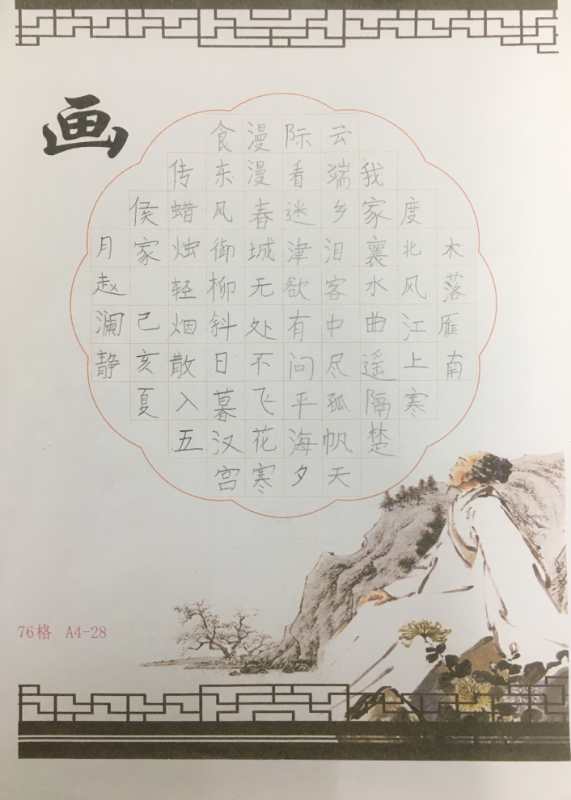 画
木落雁南
度北风江上寒
我家襄水曲遥隔楚
云端乡泪客中尽孤帆天
际看迷津欲有问平海夕
漫漫春城无处不飞花寒
食东风御柳斜日暮汉宫
传蜡烛轻烟散入五
侯家 己亥夏
月赵澜静
76格 A4-28